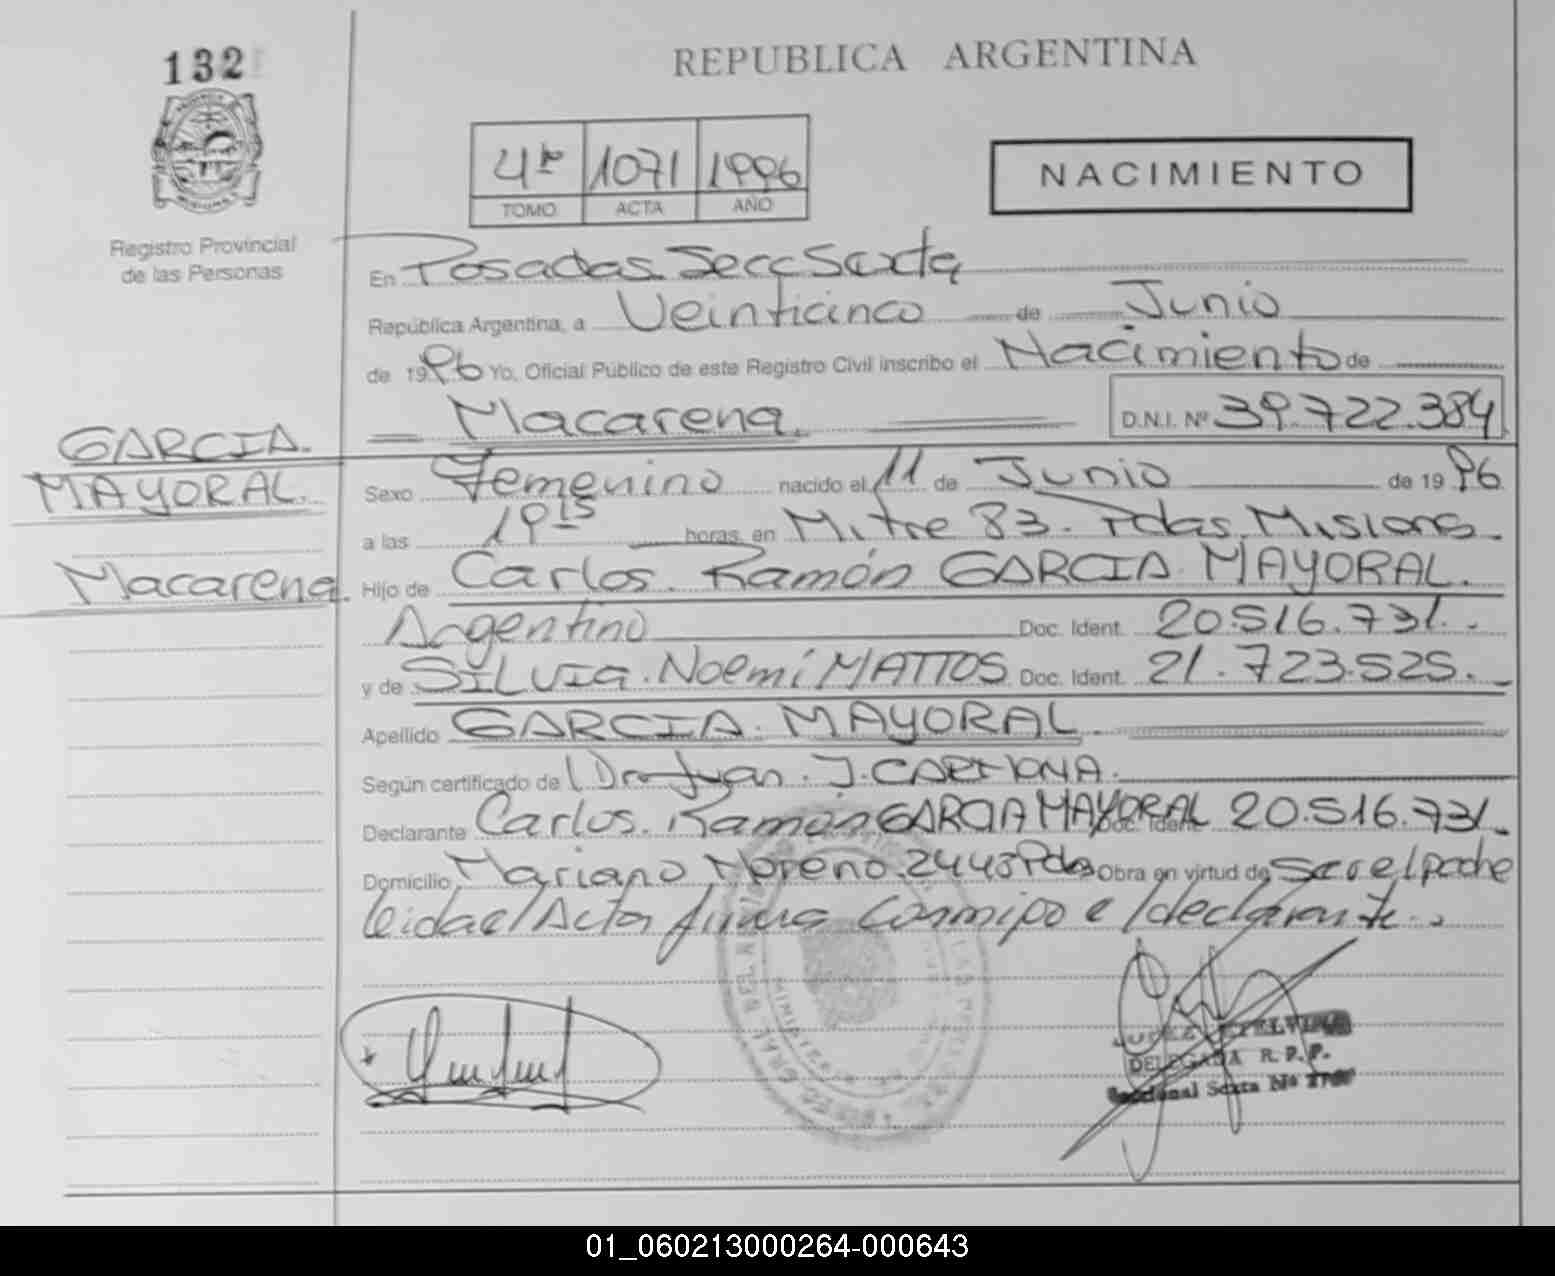 132
REPUBLICA ARGENTINA
4to 1071 1996
TOMO ACTA AÑO
NACIMIENTO
Registro Provincial
de las Personas
En Posadas Secc Sexta
República Argentina, a Veinticinco de Junio
de 1996 Yo, Oficial Público de este Registro Civil inscribo el Nacimiento de
Macarena. D.N.I. Nº 39.722.384
GARCIA.
MAYORAL.
Macarena.
Sexo Femenino nacido el 11 de Junio de 1996
a las 19 15 horas, en Mitre 83. Pdas. Misiones.
Hijo de Carlos. Ramón GARCIA MAYORAL.
Argentino Doc. Ident. 20.516.731.
y de SILVIA. Noemí MATTOS Doc. Ident. 21.723.525.
Apellido GARCIA. MAYORAL.
Según certificado de Dr Juan. J. CARMONA.
Declarante Carlos. Ramón GARCIA MAYORAL Doc. Ident. 20.516.731.
Domicilio Mariano Moreno. 2443 Pdas Obra en virtud de ser el padre
leida el Acta firma conmigo el declarante.
DELEGADA R. P. P.
Seccional Sexta Nº
01_060213000264-000643